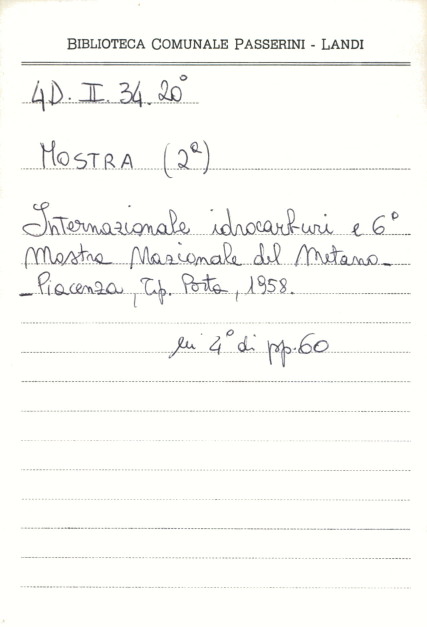 BIBLIOTECA COMUNALE PASSERINI - LANDI
4D. II. 34. 20°
MOSTRA (2ª)
Internazionale idrocarburi e 6°
Mostra Nazionale del Metano_
_Piacenza, Tip. Porta, 1958.
in 4° di pp. 60